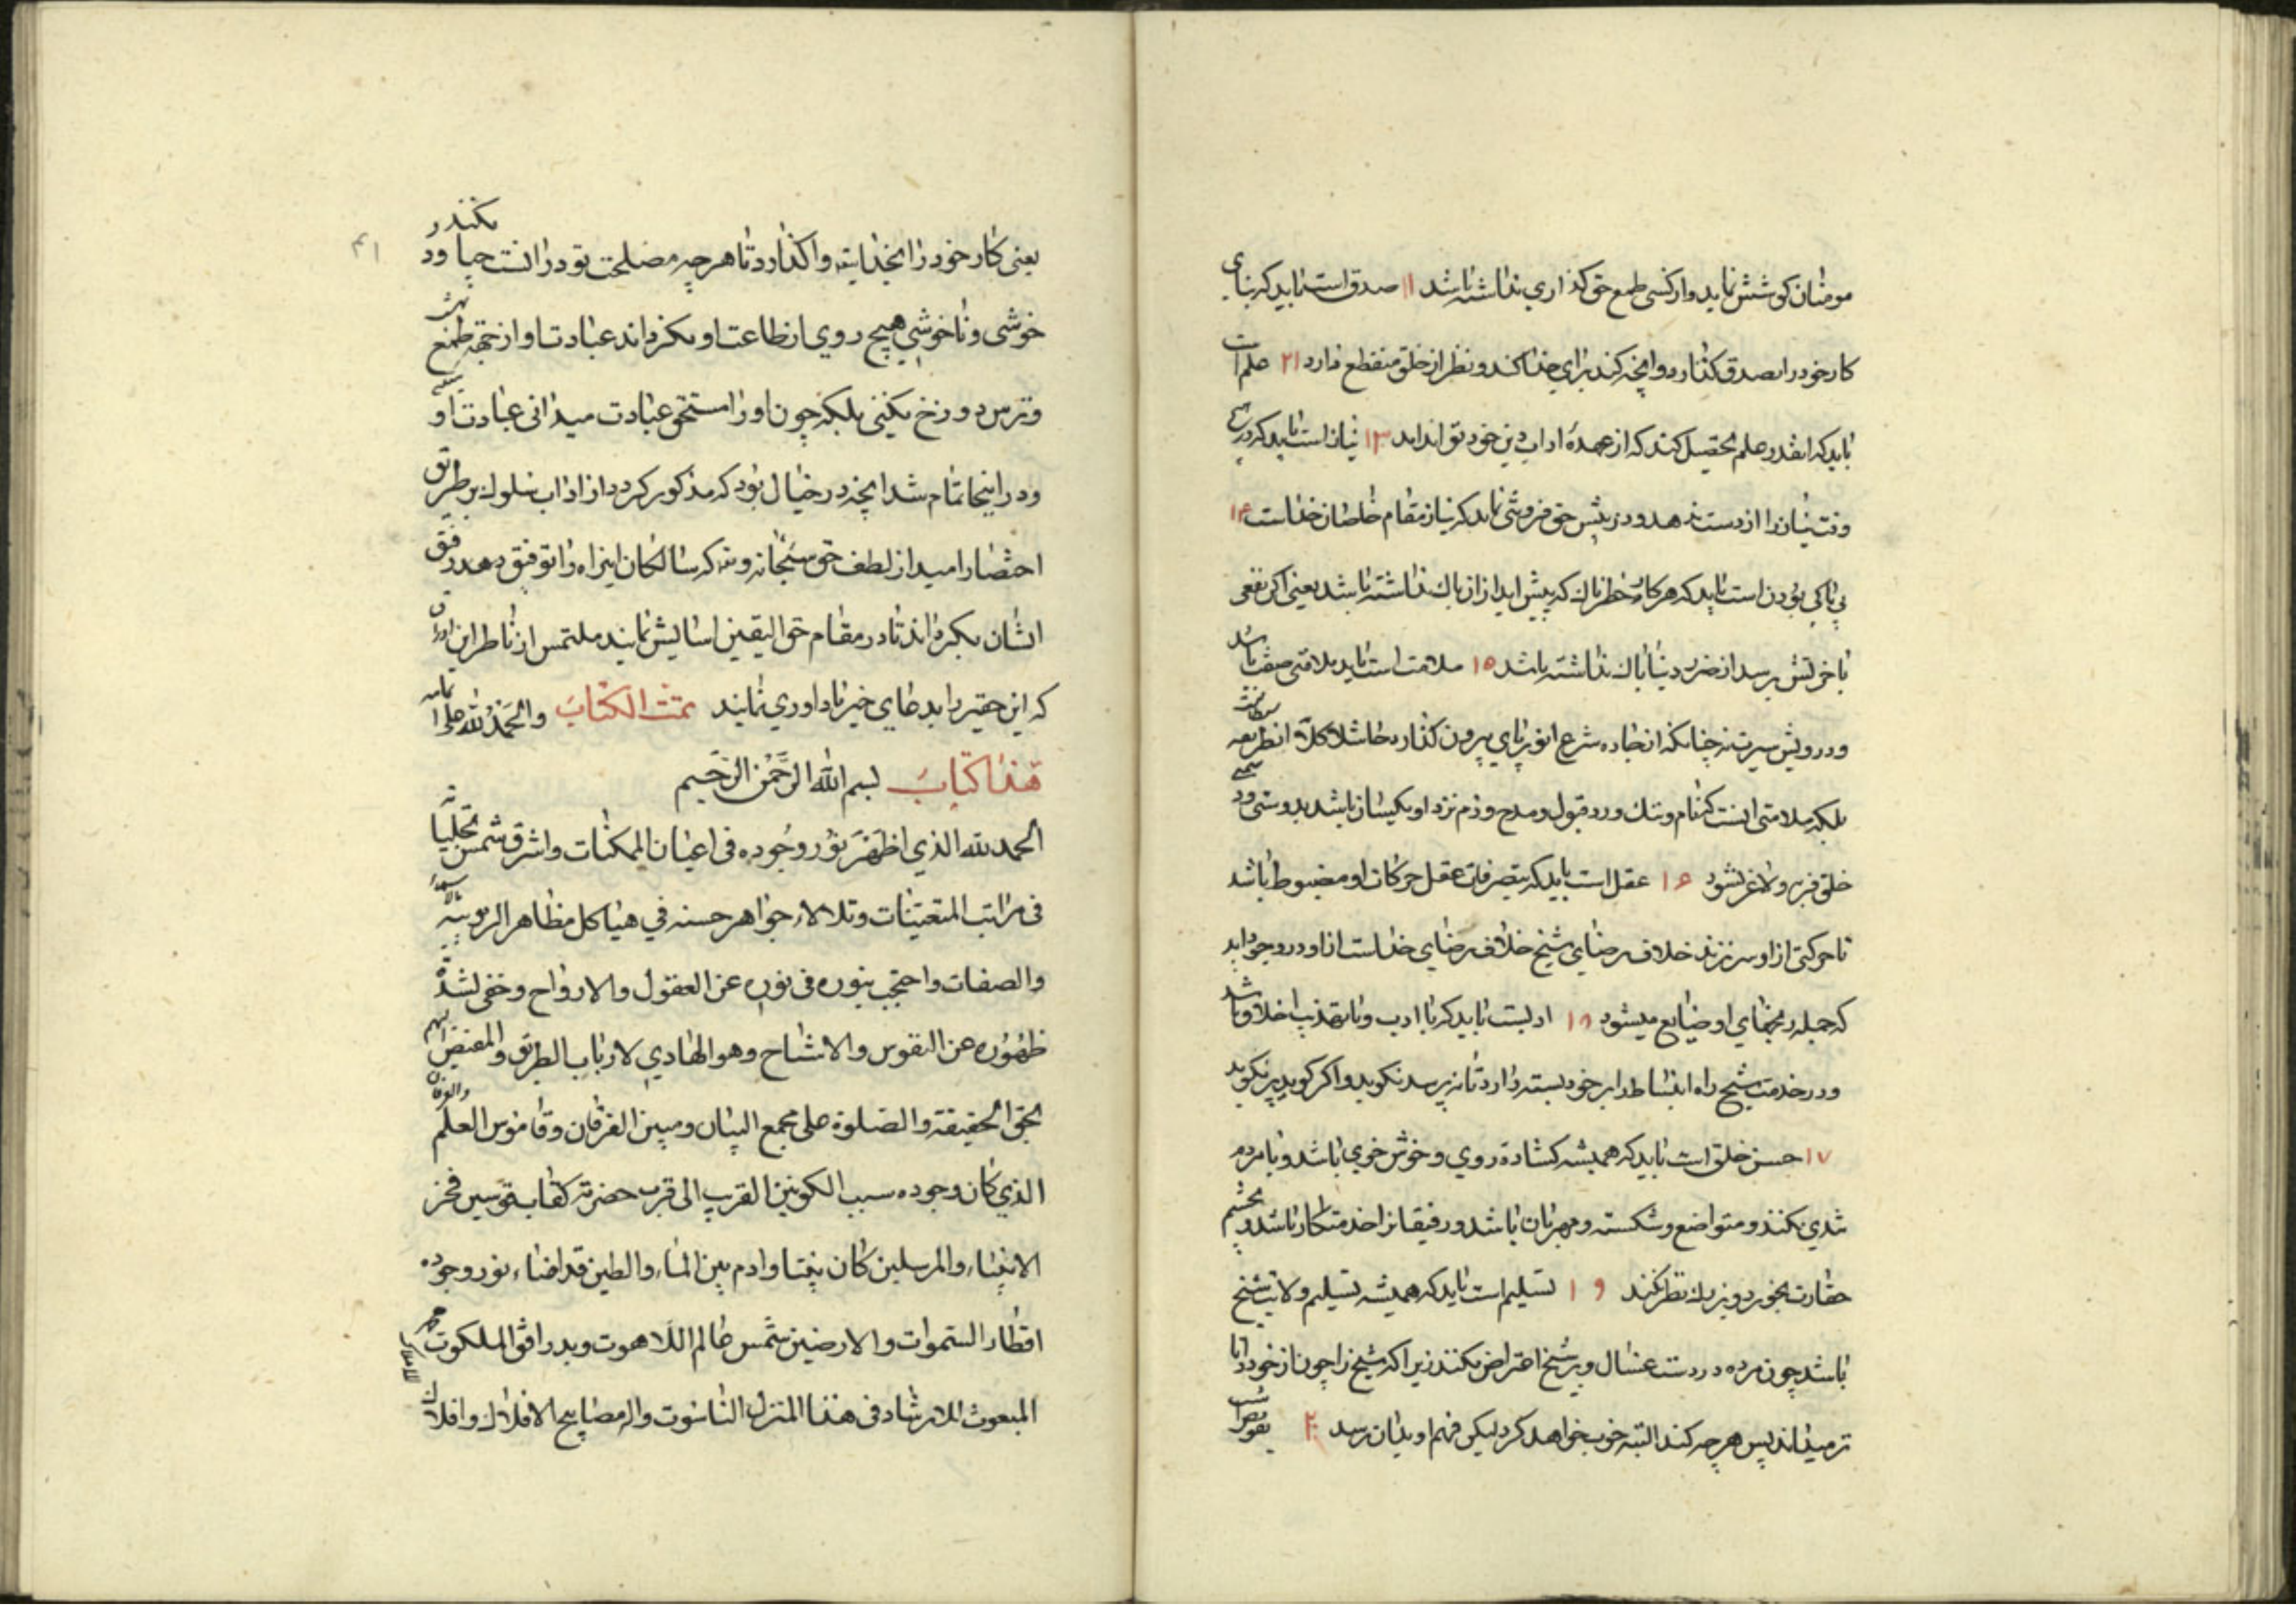 مومنان کوشش نماید و از کسی طمع حق کذاری نداشته باشد ۱۱ صدق است باید که بنای
کار خود را بصدق کذارد و آنچه کند برای خدا کند و نظر از خلق منقطع دارد ۱۲ علم است
باید که انقدر علم تحصیل کند که از عهدهٔ اداب دین خود تواند امد ۱۳ نیاز است باید که در هیچ
وقت نیاز را از دست ندهد و در پیش حق فروشی نماید که نیاز مقام خاصان خداست ۱۴
بی باکی بودن است باید که هر کار خطرناک که پیش اید از ان باک نداشته باشد یعنی اکر نفعی
باخرتش رسد از ضرر دنیا باک نداشته باشد ۱۵ ملامت است باید ملامتی صفت باشد
و درویش سیرت نه چنانکه از جاده شرع انور پای بیرون کذارد حاشا کلا
بلکه ملامتی انست که نام و ننک و رد و قبول و مدح و ذم نزد او یکسان باشد بدوستی و دشمنی
خلق فربه و لاغر نشود ۱۶ عقل است باید که بتصرفات عقل حرکات او مضبوط باشد
تا حرکتی از او سر نزند خلاف رضای شیخ خلاف رضای خداست از او در وجود اید
که جمله رنجهای او ضایع میشود ۱۸ ادبست باید که با ادب و با تهذیب اخلاق باشد
و در خدمت شیخ راه انبساط را بر خود بسته دارد تا نپرسد نکوید و اکر کوید پر نکوید
۱۷ حسن خلق است باید که همیشه کشاده روی و خوش خوی باشد و با مردم
تندی نکند و متواضع و شکسته و مهربان باشد و رفیقانرا خدمتکار باشد و بچشم
حقارت بخورد و بزرک نظر نکند ۱۹ تسلیم است باید که همیشه تسلیم ولایت شیخ
باشد چون مرده در دست غسال و بر شیخ اعتراض نکند زیرا که شیخ را چون از خود دانا
تر میداند پس هر چه کند البته خوب خواهد کرد لیکن فهم او بدان نرسد ۲۰ تفویض است
۴۱
یعنی کار خود را بخدایتعالی واکذارد تا هر چه مصلحت تو در انست چنا کند و در
خوشی و ناخوشی هیچ روی از طاعت او نکرداند عبادت او از جهة طمع بهشت
و ترس دوزخ نکنی بلکه چون او را مستحق عبادت میدانی عبادت او
و در اینجا تمام شد آنچه در خیال بود که مذکور کردد از اداب سلوک بر طریق
اختصار امید از لطف حق سبحانه و تعالی که سالکان اینراه را توفیق دهد و رفیق
ایشان بکرداند تا در مقام حق الیقین اسایش نمایند ملتمس از ناظران این اوراق
که این حقیر را بدعای خیر یاد اوری نمایند تمت الکتاب والحمد لله علی اتمامه
هذا کتاب بسم الله الرحمن الرحیم
الحمد لله الذی اظهر نور وجوده فی اعیان الممکنات واشرق شمس تجلیاته
فی مراتب المتعینات وتلالاء جواهر حسنه فی هیاکل مظاهر الربوبیه
والصفات واحتجب بنوره فی نوره عن العقول والارواح وخفی لشدة
ظهوره عن النفوس والاشباح وهو الهادی لارباب الطریق والمفیض الیهم
بحق الحقیقة والصلوة علی مجمع البیان ومبین الفرقان وقاموس العلم والعرفان
الذی کان وجوده سبب الکونین القریب الی قرب حضرته کقاب قوسین فخر
الانبیاء والمرسلین کان نبیا وادم بین الماء والطین قد اضاء نور وجوده
اقطار السموات والارضین شمس عالم اللاهوت وبدر افق الملکوت
المبعوث للارشاد فی هذا المنزل الناسوت واله مصابیح الافلاک وافلاک